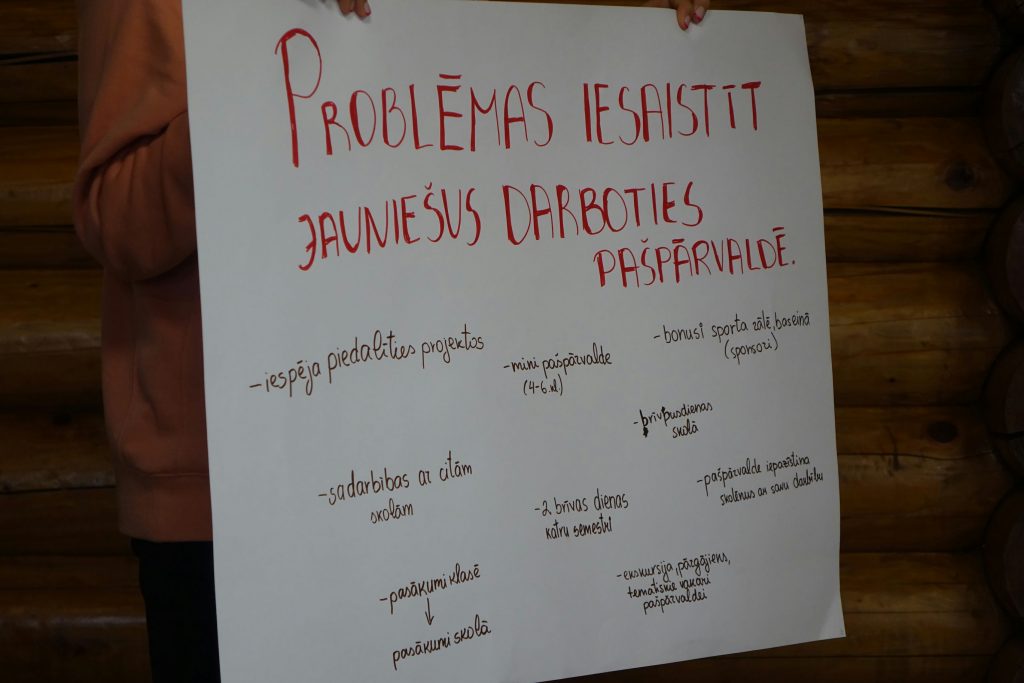 PROBLĒMAS IESAISTĪT
JAUNIEŠUS DARBOTIES
PAŠPĀRVALDĒ.
-iespēja piedalīties projektos
-mini pašpārvalde
(4-6.kl)
-bonusi sporta zālē, baseinā
(sponsori)
-brīvpusdienas
skolā
-sadarbības ar citām
skolām
-2 brīvas dienas
katru semestri
-pašpārvalde iepazīstina
skolēnus ar savu darbību
-pasākumi klasē
↓
pasākumi skolā
-ekskursija, pārgājiens,
tematiskie vakari
pašpārvaldei